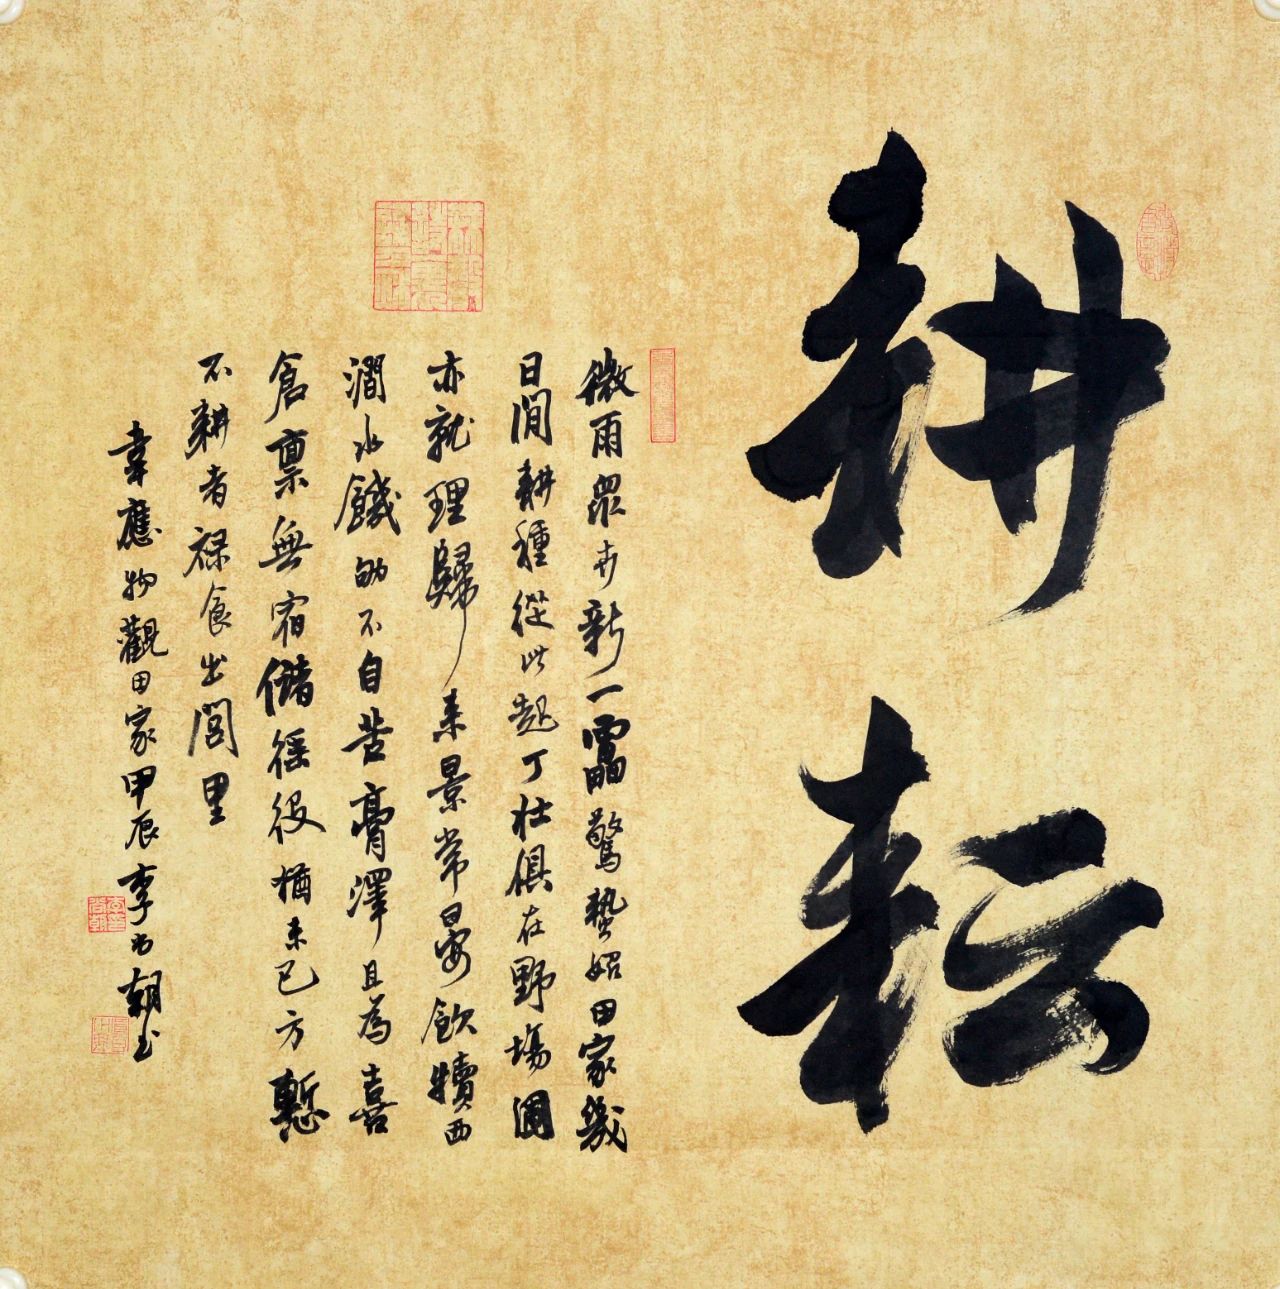 耕耘
微雨眾卉新一雷驚蟄始田家幾
日閒耕種從此起丁壯俱在野場圃
亦就理歸來景常晏飲犢西
澗水饑劬不自苦膏澤且為喜
倉禀無宿儲徭役猶未已方慙
不耕者禄食出閭里
韋應物觀田家甲辰李尚朝書